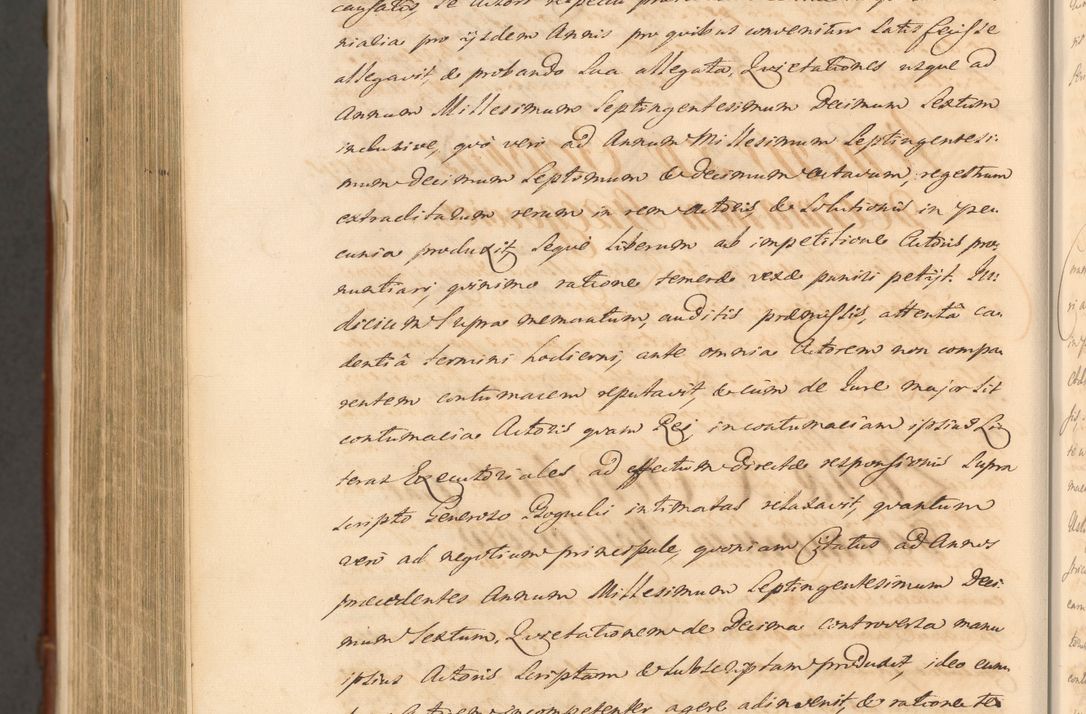 nialia pro ijsdem Annis pro quibus convenitur satisfecisse
allegavit, & probando sua allegata, Quietationes usque ad
Annum Millesimum Septingentesimum Decimum Sextum
inclusive, quò verò ad Annum Millesimum Septingentesi:
mum Decimum Septimum & Decimum octavum, regestrum
extraditarum rerum in rem Actoris & Solutionis in pecu
cunia produxit seque liberum ab impetitione Actoris pro
nuntiari, quinimo ratione temerè vexæ puniri petijt. Ju
dicium Supra memoratum, auditis præmissis, attentâ ca
dentiâ termini hodierni, ante omnia Actorem non compa
rentem contumacem reputavit, & cùm de Jure major sit
contumacia Actoris quam Rei, in contumaciam ipsius Lit
teras Executoriales ad effectum directæ responsionis supra
scripto Generoso Rogueli intimatas relaxavit, quantum
verò ad negotium principale, quoniam Citatus ad Annos
præcedentes Annum Millesimum Septingentesimum Deci
mum Sextum, Quietationem de Decima controversa manu
ipsius Actoris Scriptam & subscriptam produxit, ideo cum
Actorem incompetenter agere adinvenit, & ratione te